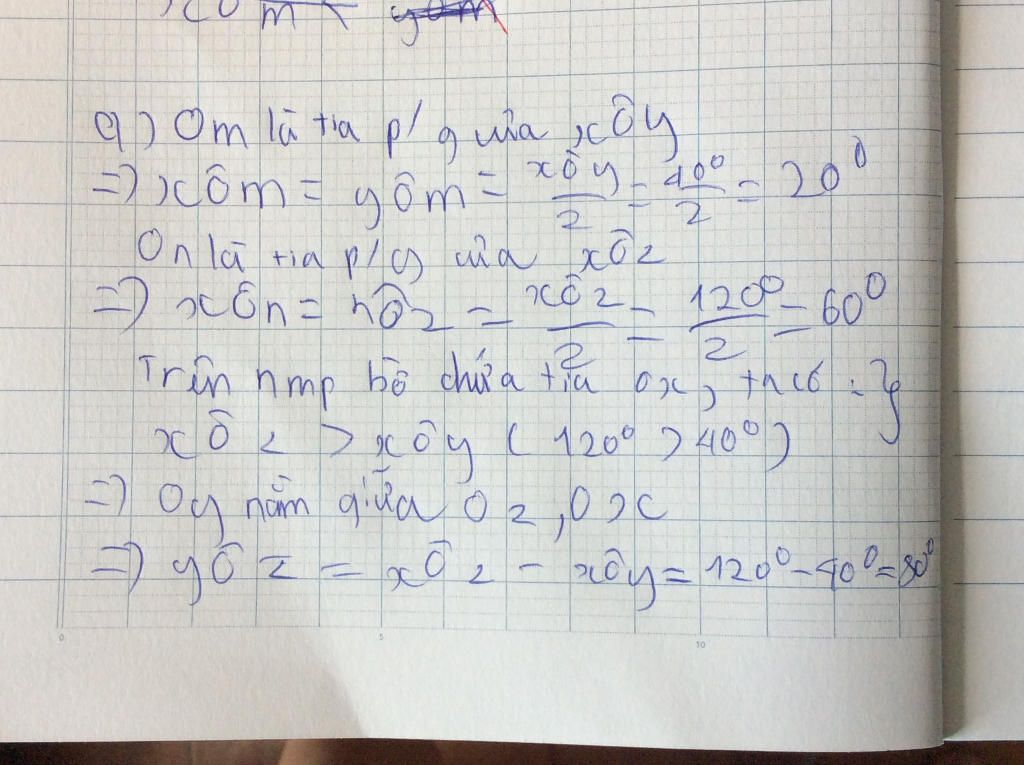 xÔm yÔm
a) Om là tia p/g của xÔy
=> xÔm = yÔm = xÔy/2 = 40°/2 = 20°
On là tia p/g của xÔz
=> xÔn = nÔz = xÔz/2 = 120°/2 = 60°
Trên nmp bờ chứa tia Ox, ta có :
xÔz > xÔy (120° > 40°)
=> Oy nằm giữa Oz, Ox
=> yÔz = xÔz - xÔy = 120° - 40° = 80°
0 5 10